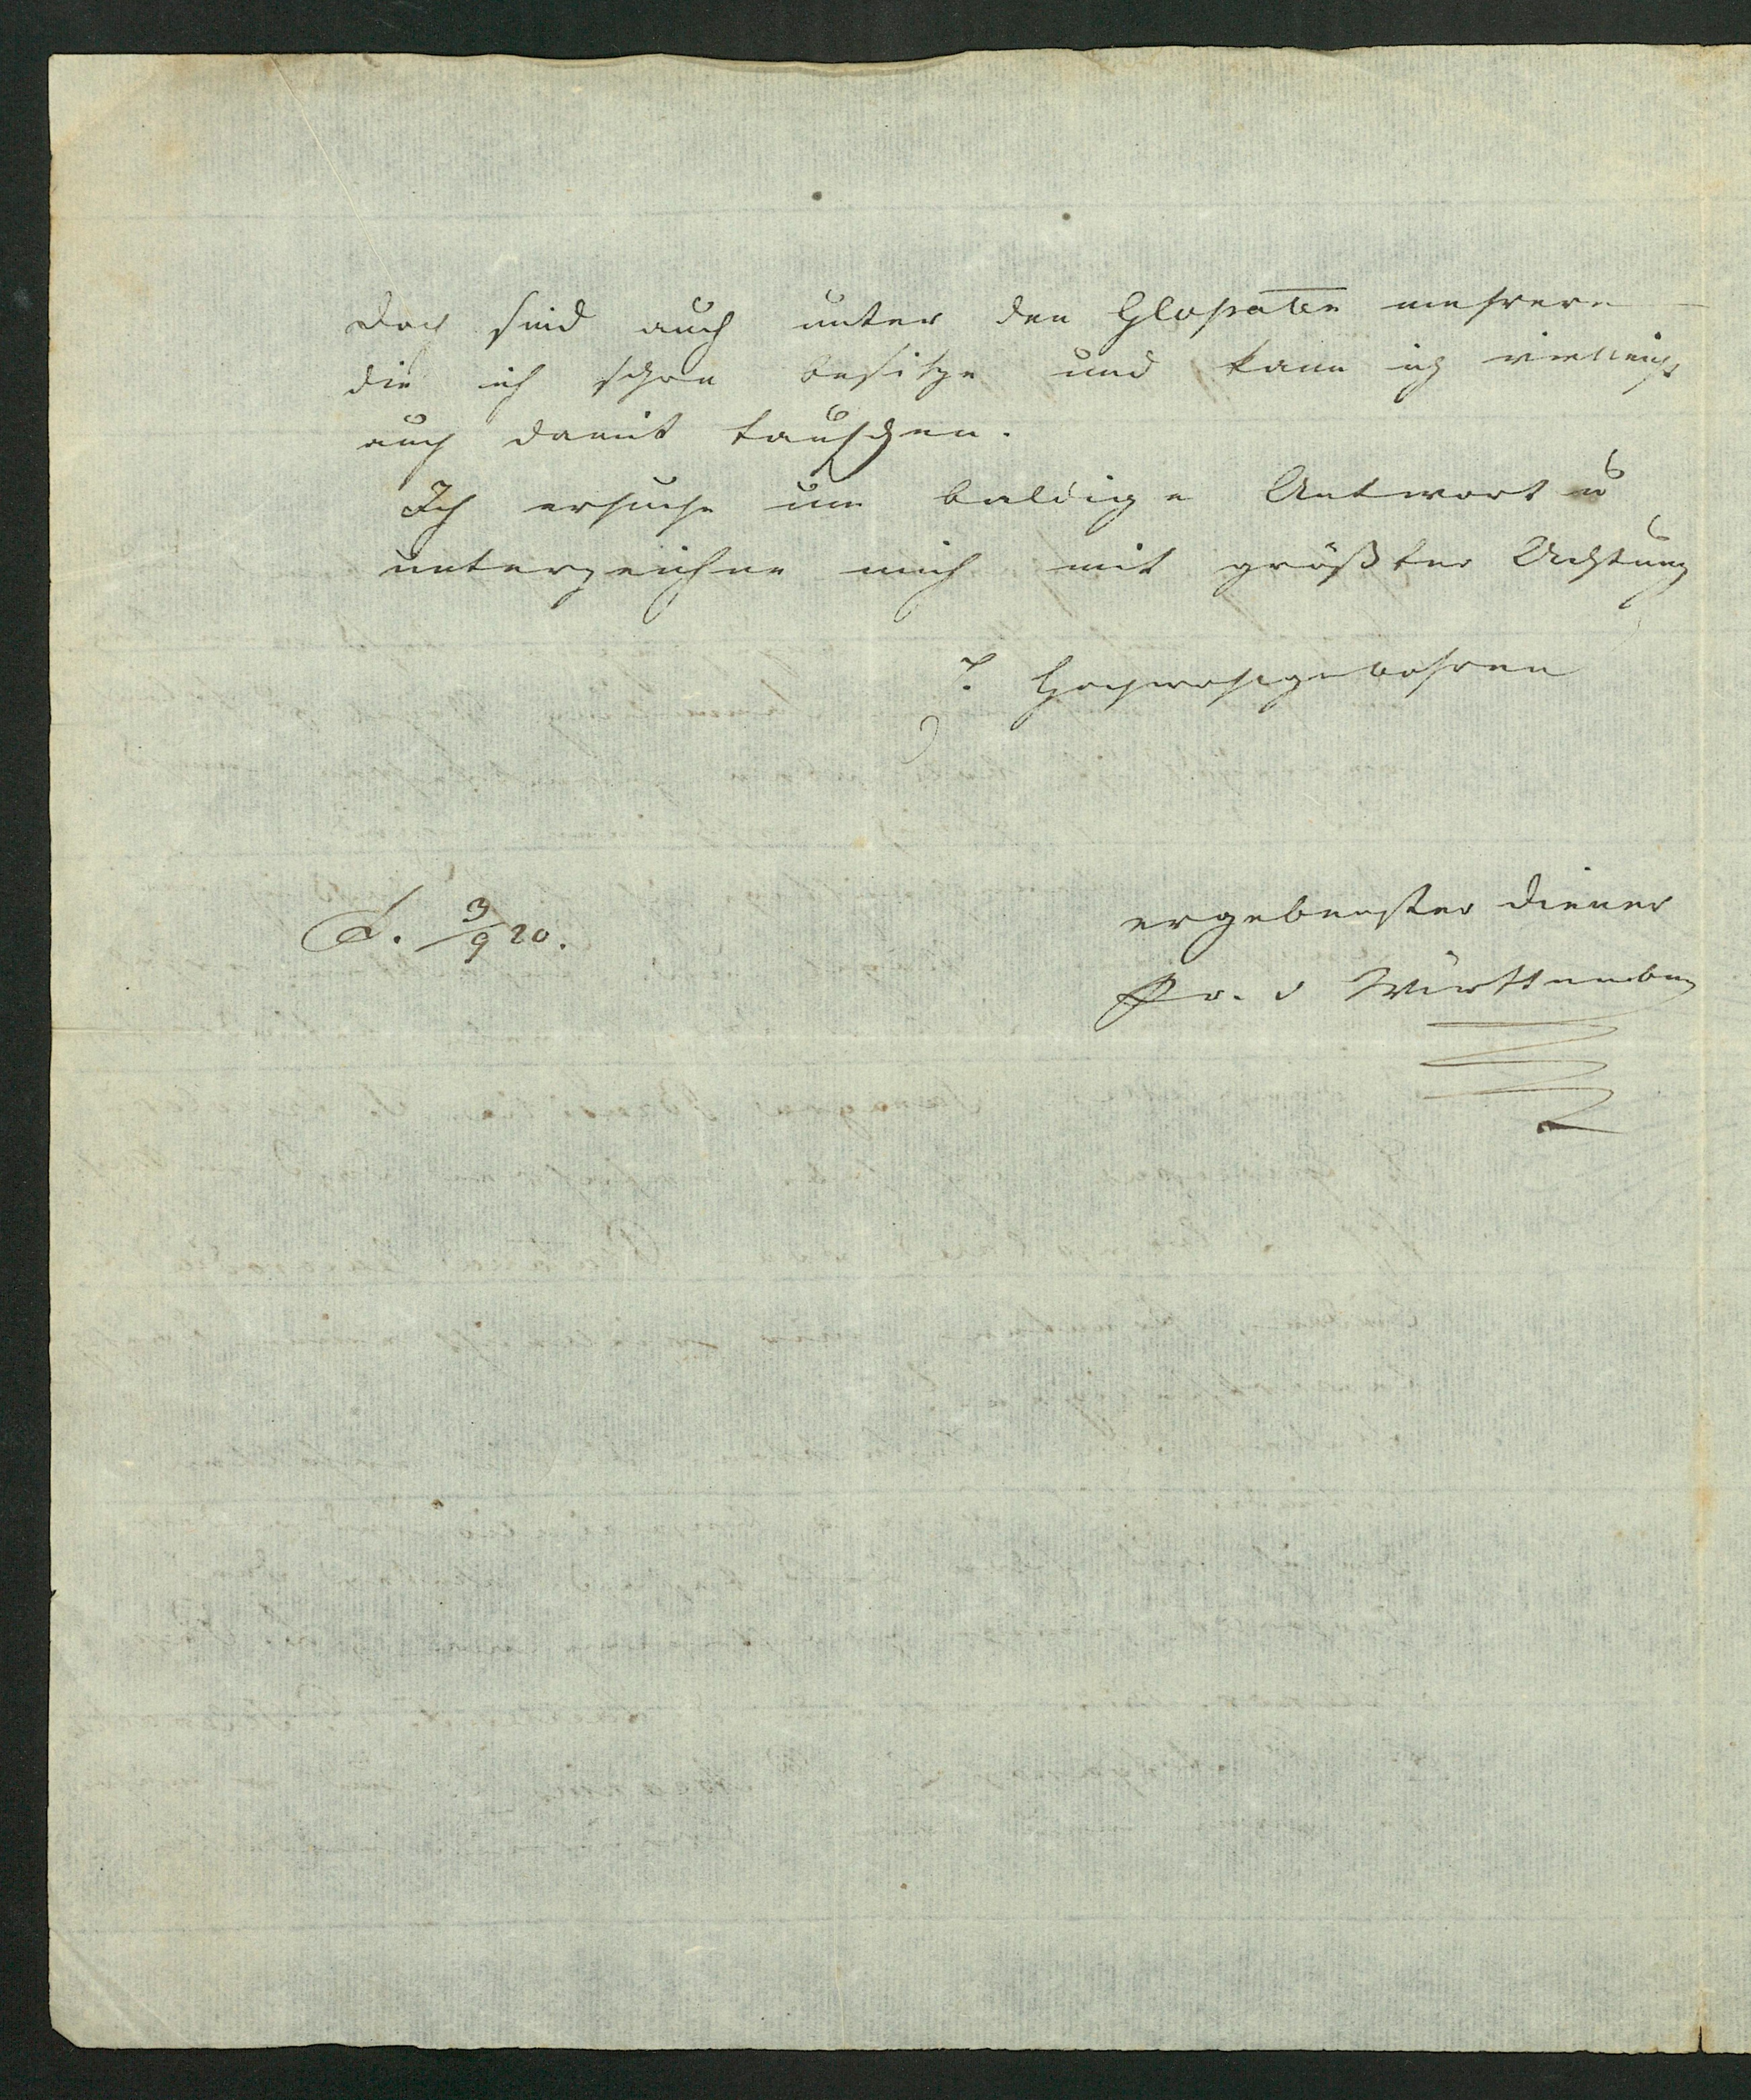 doch sind auch unter den mehrere
die ich schon besitze und kann ich vielleicht
auch damit tauschen.
Ich ersuche um baldige Antwort u
unterzeichne mich mit größter Achtung
Hochwohlgebohren
ergebenster Diener
S. 3/9 20.
Pr. v Württemberg